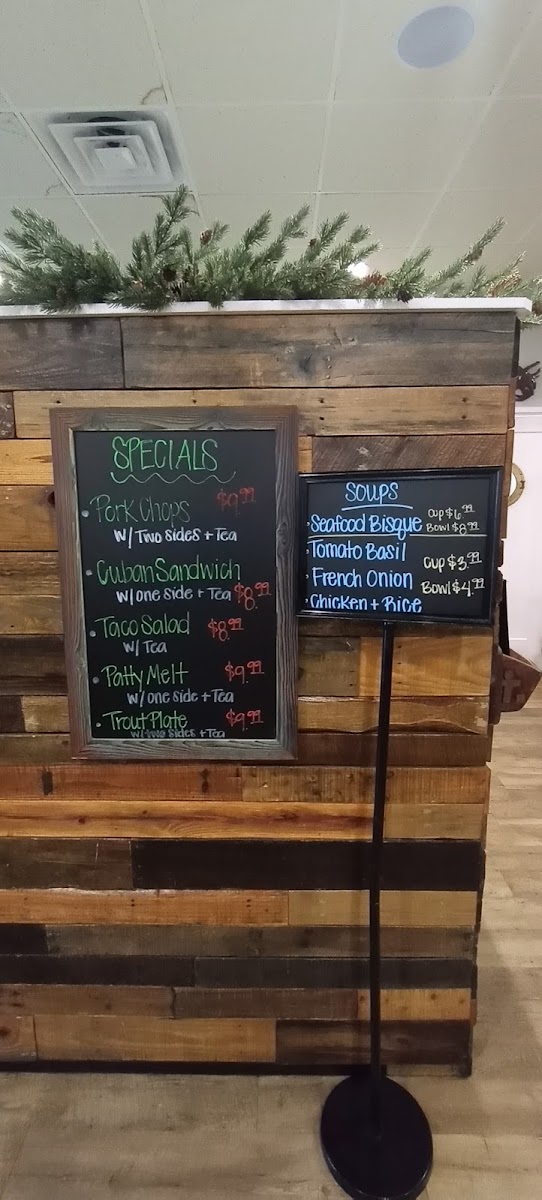 SPECIALS
Pork Chops $9.99
w/ Two sides + Tea
Cuban Sandwich
w/ one side + Tea $8.99
Taco Salad $8.99
w/ Tea
Patty Melt $9.99
w/ one side + Tea
Trout Plate $9.99
w/ two sides + Tea
SOUPS
Seafood Bisque Cup $6.99
Bowl $8.99
Tomato Basil
Cup $3.99
French Onion Bowl $4.99
Chicken + Rice